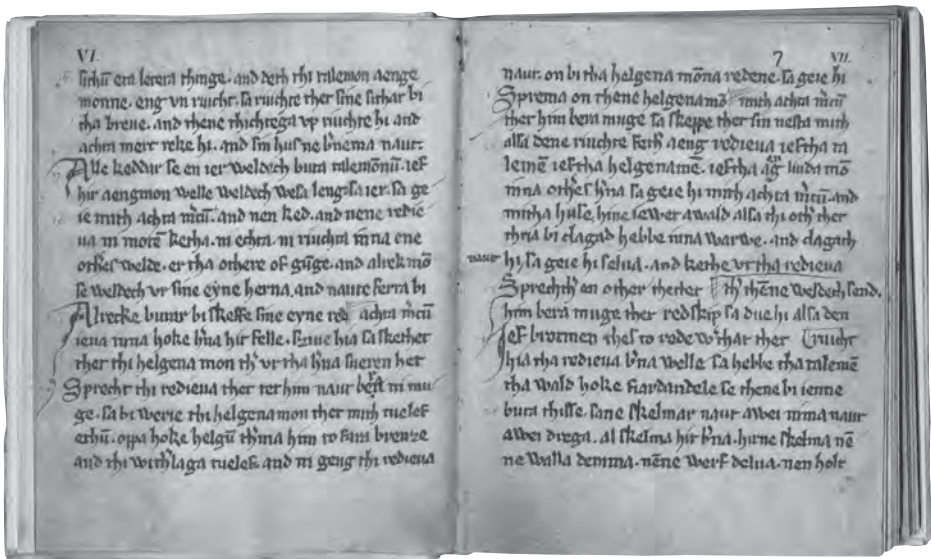 VI.
sithū era lerera thinge. and deth thi talemon aenge
monne. eng vn riucht. sa riuchte ther sine sithar bi
tha breue. and thene thichtega vp riuchte hi and
achta merr reke hi. and sin hus ne b'nema naut.
Alle keddar se en ier weldech buta talemōnū. ief
hir aengmon welle weldech wesa leng. sa ier. sa ge
ie mith achta m'cū. and nen ked. and nene redie
ua ni mote ketha. ni echta. ni riuchta inna ene
othes welde. er tha othere of gūge. and alrek mō
se weldech vr sine eyne herna. and naute ferra bi
Alrecke burar bi skeffe sine eyne red achta m'cū
ieua inna hoke b'na hir felle. hia sa skether
ther thi helgena mon th' vr tha b'na sueren het
Sprecht thi redieua ther ter him naut best ni mu
ge. sa bi werie thi helgena mon ther mith tuelef
ethū. oppa hoke helgū th'ma him to fara brenze
and thi with'laga tuelef. and ni geng thi redieua
7 VII.
naut. on bi tha helgena mōna redene. sa geie hi
Sprema on thene helgena mō mith achta m'cū
ther him bera muge sa skeppe ther sin nesta mith
alsa dene riuchte. Keth aeng redieua ieftha ta
lemē ieftha helgenamē. ieftha ag en liuda mō
inna othes b'na sa geie hi mith achta m'cū. and
mitha huse. hine se wer awald alsa thi oth' ther
thria bi clagad hebbe inna warwe. and clagath
naut hi, sa geie hi selua. and kethe vr tha redieua
Sprechth en other thetter th' thēne weldech send.
him bera muge ther redskip sa due hi alsa den
Jef brocmen thes to rede w'that ther riucht
hia tha redieua b'na welle. sa hebbe tha talemē
tha wald hoke fiardandele se thene bi ienne
buta thisse. sane skelmar naut awei nima naut
awei drega. al skelma hir b'na. hirne skelma nē
ne walla demma. nēne werf delua. nen holt